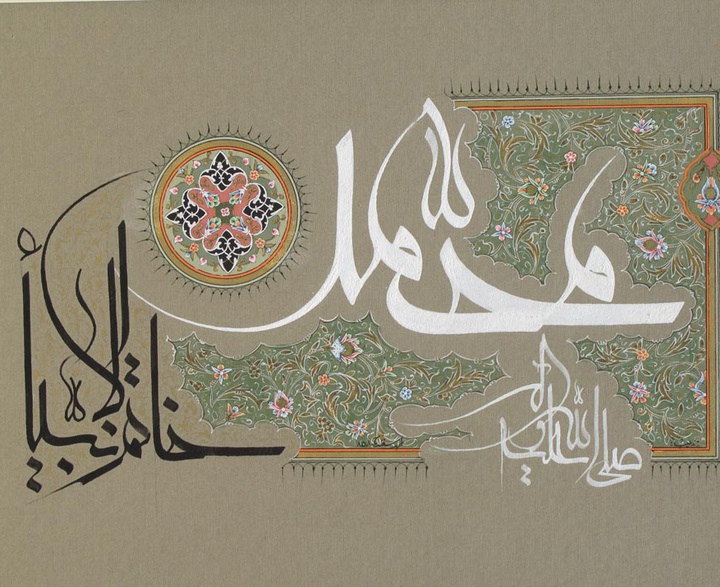 محمد
صلی الله علیه و آله
خاتم الأنبیاء